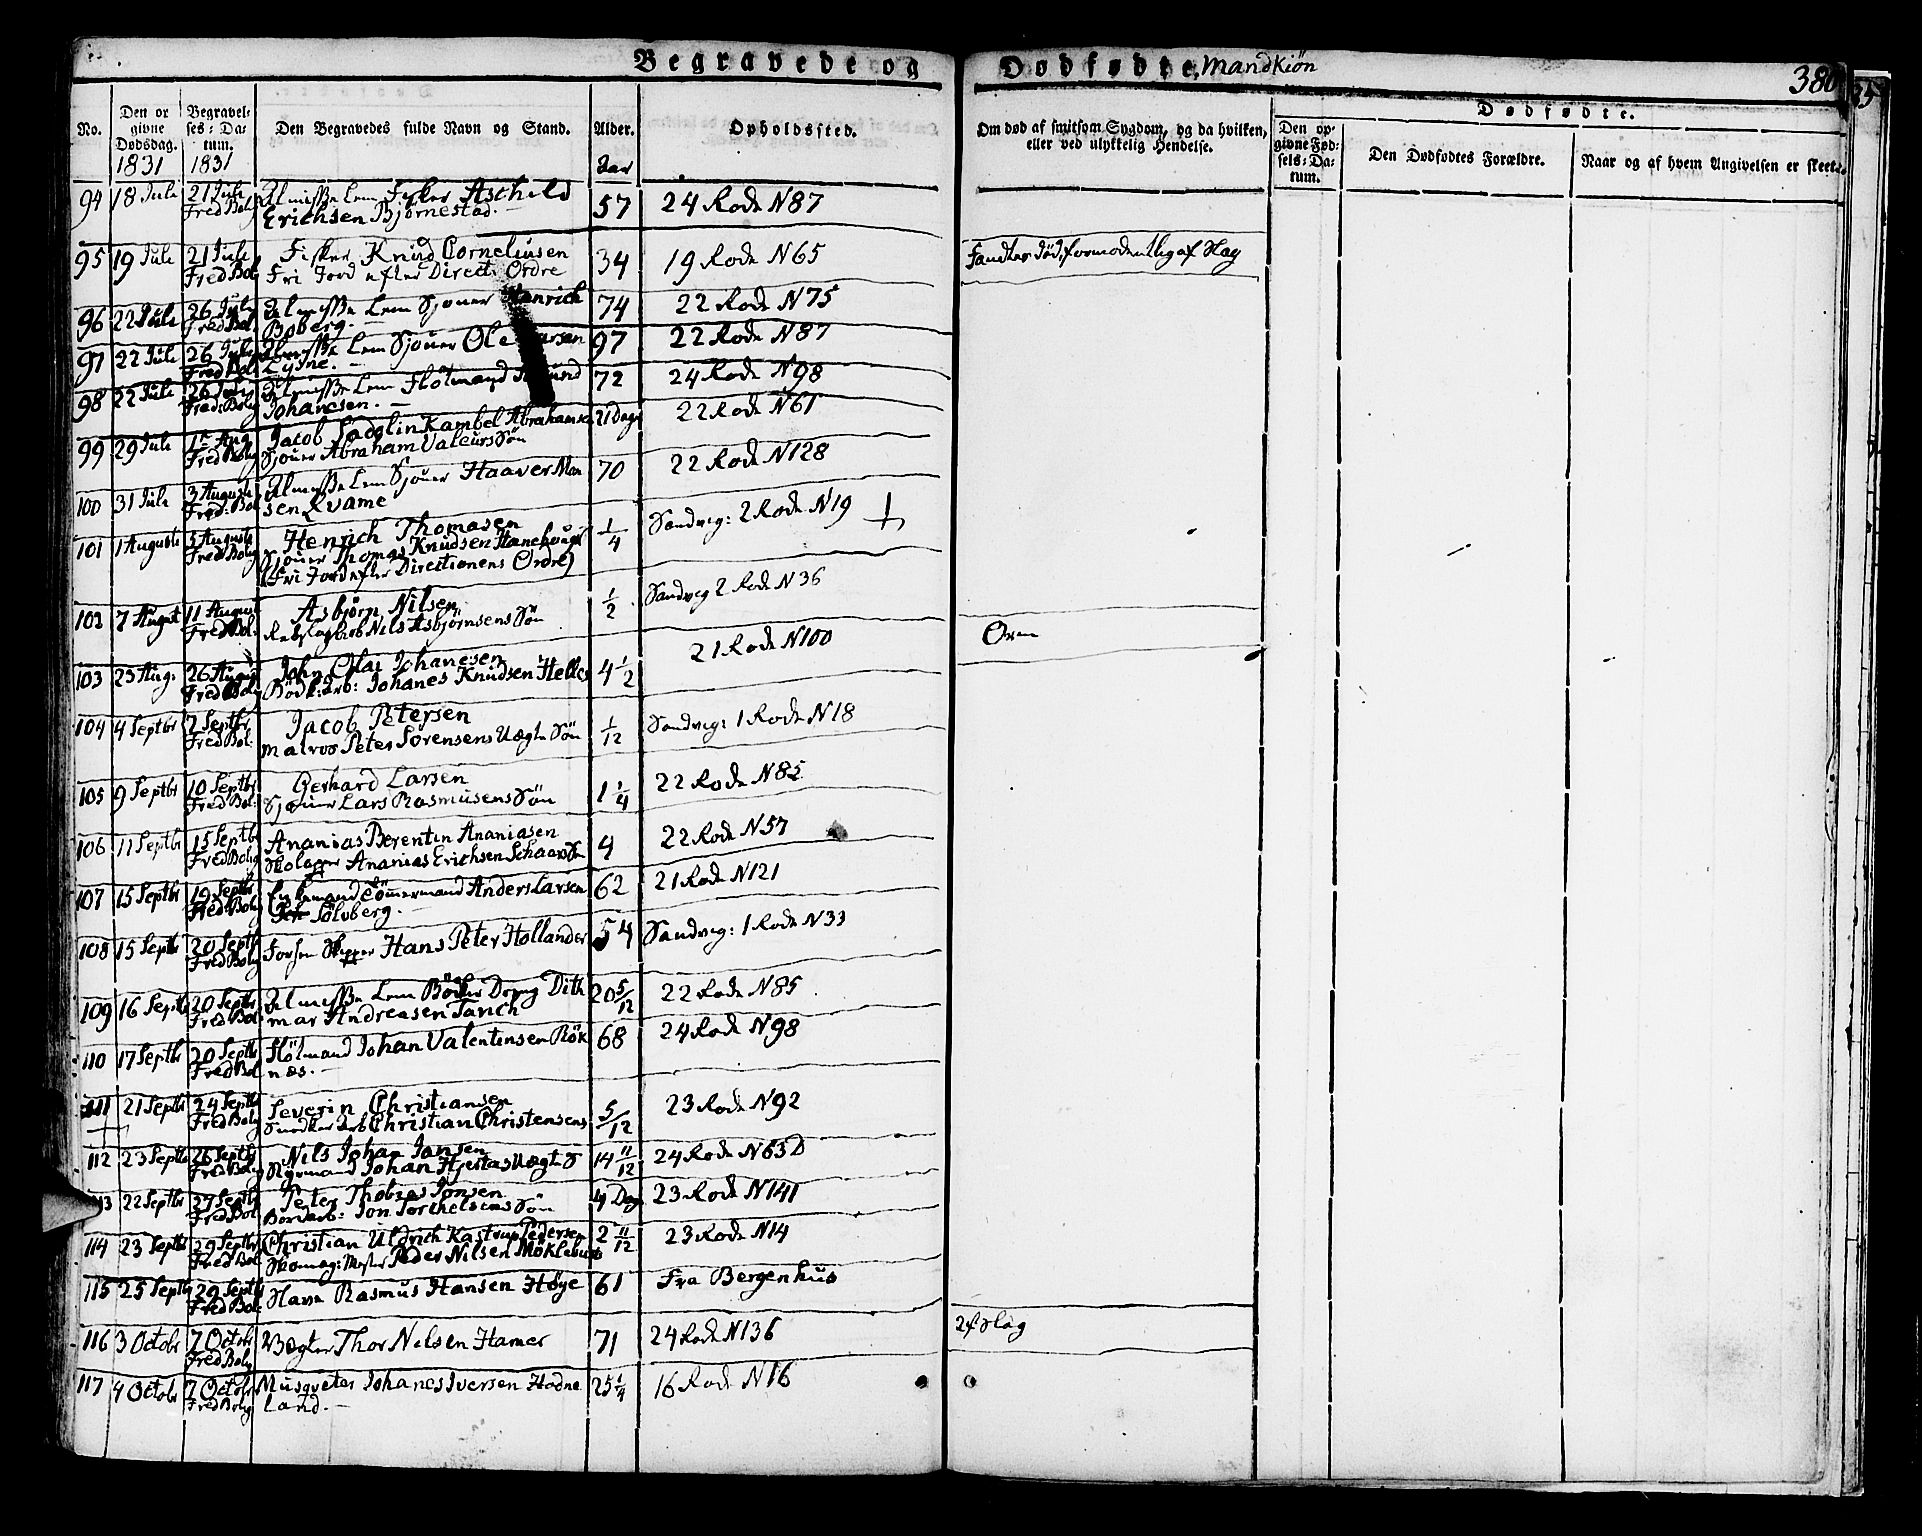 Begravede og Dødfødte, Mandkiön
380
No.
Den op
givne
Dødsdag.
1831
Begravel-
ses-Da-
tum.
1831
Den Begravedes fulde Navn og Stand.
Alder.
Aar
Opholdssted.
Om død af smitsom Sygdom, og da hvilken,
eller ved ulykkelig Hendelse.
Dødfødte.
Den op-
givne Fød-
sels-Da-
tum.
Den Dødfødtes Forældre.
Naar og af hvem Angivelsen er skeet.
94 18 Jule 21 Jule Almisse Lem Fisker Aschild 57 24 Rode N 87
Fred Bolg Erichsen Bjørnestad.
95 19 Jule 21 Jule Fisker Knud Corneliusen 34 19 Rode N 65 Fandtes død, formodentlig af Slag
Fred Bolg Fri Jord efter Direct: Ordre
96 22 Jule 26 Jule Almisse Lem Sjouer Henrich 74 22 Rode N 75
Fred Bol. Boberg.
97 22 Jule 26 Jule Almisse Lem Sjouer Ole Larsen 97 22 Rode N 87
Fred Bol Lydne.
98 22 Jule 26 Jule Almisse Lem Flotmand 72 24 Rode N 98
Fred: Bolg Johannesen.
99 29 Jule 1te Aug Jacob Sadolin Kambel Abrahamsen 21 Dage 22 Rode N 61
Fred Bolg Sjouer Abraham Valeurs Søn
100 31 Jule 3 Auguste Almisse Lem Sjouer Haaver Mon 70 22 Rode N 128
Fred: Bol sen Qvame
101 1 Auguste 5 Auguste Henrich Thomasen 1/4 Sandvig: 2 Rode N 19
Fred Bolg Sjouer Thomas Knudsen Hanehougs
(Fri Jord efter Directionens Ordre)
102 7 August 11 August Asbjørn Nilsen 1/2 Sandvig 2 Rode N 36 Orm
Fred Bol: Rebslagerb Nils Asbjørnsens Søn
103 23 Aug. 26 August John Olai Johanesen 4 1/2 21 Rode N 100
Fred Bolg Bödk: Arb: Johanes Knudsen Helles
104 4 Septbr 7 Septbr Jacob Petersen 1/12 Sandvig: 1 Rode N 18
Fred Bol: Matros Peter Sorensens Uægte Søn
105 9 Septbr 10 Septbr Gerhard Larsen 1 1/4 22 Rode N 85
Fred Bol: Sjouer Lars Rasmusens Søn
106 11 Septbr 15 Septbr Ananias Berentin Ananiasen 4 22 Rode N 57
Fred Bolg Ananias Erichsen Schaars Sn
107 15 Septbr 19 Septbr Enkemand Tømmermand Anders Larsen 62 21 Rode N 121
Fred Bolg Sölvberg.
108 15 Septbr 20 Septbr Forhen Skipper Hans Peter Hollander 54 Sandvig: 1 Rode N 33
Fred Bolg
109 16 Septbr 20 Septbr Almisse Lem Bödker Dreng Dith 20 5/12 22 Rode N 85
Fred Bol: mar Andreasen Tanch
110 17 Septbr 20 Septbr Flötmand Johan Valentinsen Rök 68 24 Rode N 98
Fred Bol næs.
111 21 Septbr 24 Septbr Severin Christiansen 5/12 23 Rode N 92
Fred Bolg Snedker Arb Christian Christensens
112 23 Septbr 26 Septbr Nils Johan Jansen 14 11/12 24 Rode N 63 D
Fred Bolg Styrmand Johan Hjertas Uægte S
113 22 Septbr 27 Septbr Peter Thobias Jonsen 4 Dag 23 Rode N 141
Fred Bol: Bordarb: Jon Torchelsens Søn
114 23 Septbr 29 Septbr Christian Uldrich Kastrup Pedersen 2 11/12 23 Rode N 14
Fred Bol Skomag: Mester Peder Nilsen Möklebust
115 25 Septbr 29 Septbr Slave Rasmus Hansen Höye 61 Fra Bergenhus
Fred Bol:
116 3 Octobr 7 Octobr Vægter Thor Nilsen Hamer 71 24 Rode N 136 Af Slag
Fred Bolg
117 4 Octobr 7 Octobr Musqveter Johanes Iversen Hodne 25 1/4 16 Rode N 16
Fred Bolg land.